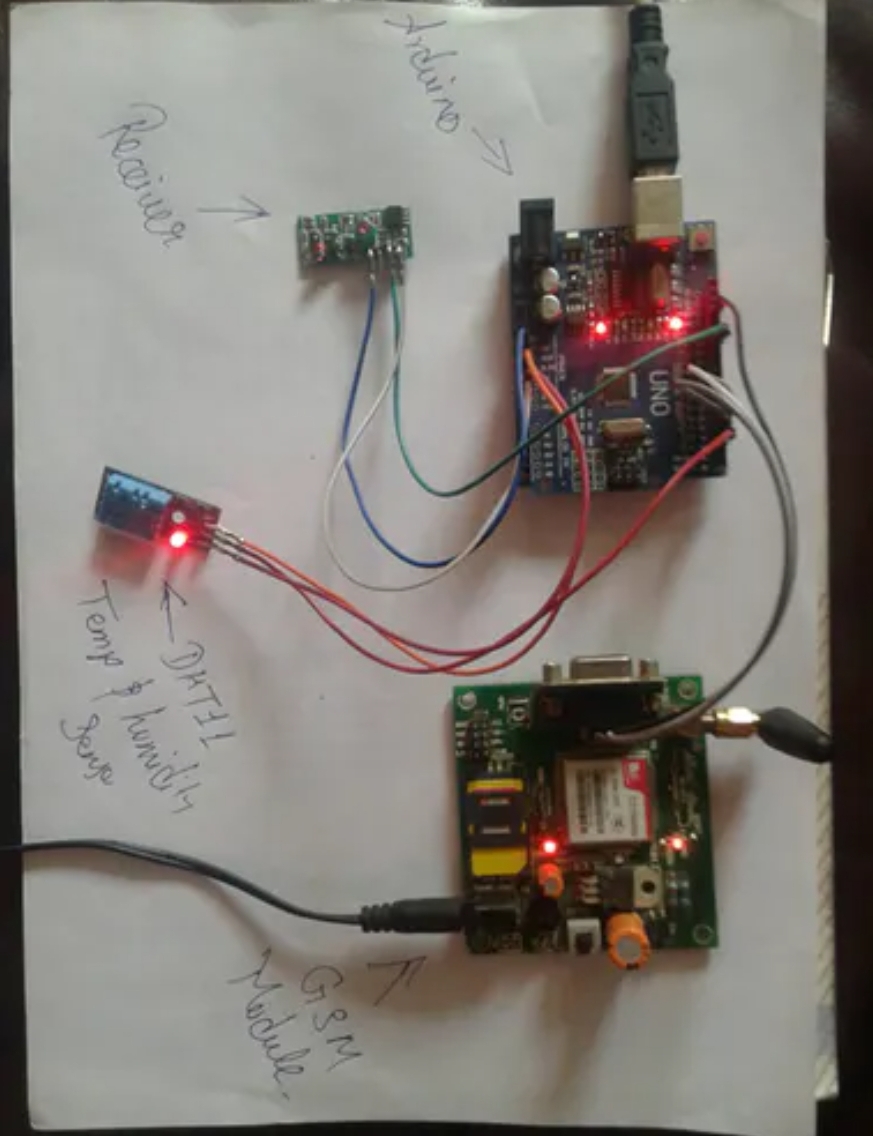 Arduino
Receiver
UNO
DHT11
Temp & humidity
GSM
Module.